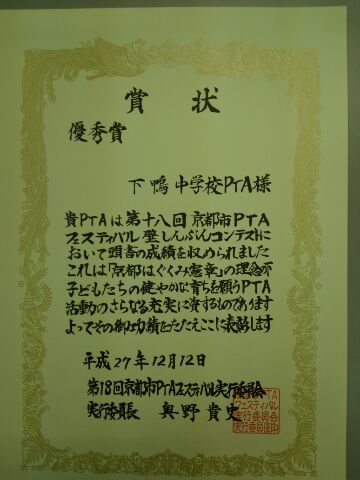 賞状
優秀賞
下鴨中学校PTA様
貴PTAは第十八回京都市PTA
フェスティバル壁しんぶんコンテストに
おいて頭書の成績を収められました
これは「京都はぐくみ憲章」の理念の下
子どもたちの健やかな育ちを願うPTA
活動のさらなる充実に資するものであります
よってその御功績をたたえここに表彰します
平成27年12月12日
第18回京都市PTAフェスティバル実行委員会
実行委員長 奥野貴史
フェスティバル
実行委員会